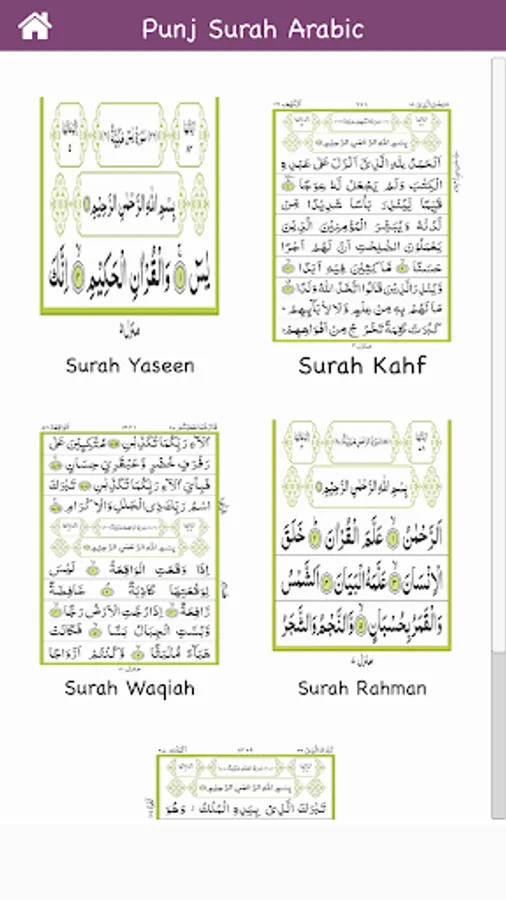 Punj Surah Arabic
بِسْمِ اللهِ الرَّحْمٰنِ الرَّحِيْمِ
يٰسٓ وَالْقُرْاٰنِ الْحَكِيْمِ اِنَّكَ
Surah Yaseen
بِسْمِ اللهِ الرَّحْمٰنِ الرَّحِيْمِ
اَلْحَمْدُ لِلّٰهِ الَّذِيْٓ اَنْزَلَ عَلٰى عَبْدِهِ
الْكِتٰبَ وَلَمْ يَجْعَلْ لَّهٗ عِوَجًا
قَيِّمًا لِّيُنْذِرَ بَاْسًا شَدِيْدًا مِّنْ
لَّدُنْهُ وَيُبَشِّرَ الْمُؤْمِنِيْنَ الَّذِيْنَ
يَعْمَلُوْنَ الصّٰلِحٰتِ اَنَّ لَهُمْ اَجْرًا
حَسَنًا مَّاكِثِيْنَ فِيْهِ اَبَدًا
وَّيُنْذِرَ الَّذِيْنَ قَالُوا اتَّخَذَ اللهُ وَلَدًا
مَا لَهُمْ بِهٖ مِنْ عِلْمٍ وَّلَا لِاٰبَآئِهِمْ
كَبُرَتْ كَلِمَةً تَخْرُجُ مِنْ اَفْوَاهِهِمْ
Surah Kahf
اٰلَآءِ رَبِّكُمَا تُكَذِّبٰنِ مُتَّكِـِٕيْنَ عَلٰى
رَفْرَفٍ خُضْرٍ وَّعَبْقَرِيٍّ حِسَانٍ
فَبِاَيِّ اٰلَآءِ رَبِّكُمَا تُكَذِّبٰنِ تَبٰرَكَ
اسْمُ رَبِّكَ ذِى الْجَلٰلِ وَالْاِكْرَامِ
بِسْمِ اللهِ الرَّحْمٰنِ الرَّحِيْمِ
اِذَا وَقَعَتِ الْوَاقِعَةُ لَيْسَ
لِوَقْعَتِهَا كَاذِبَةٌ خَافِضَةٌ
رَّافِعَةٌ اِذَا رُجَّتِ الْاَرْضُ رَجًّا
وَّبُسَّتِ الْجِبَالُ بَسًّا فَكَانَتْ
هَبَآءً مُّنْۢبَثًّا وَّكُنْتُمْ اَزْوَاجًا
Surah Waqiah
بِسْمِ اللهِ الرَّحْمٰنِ الرَّحِيْمِ
اَلرَّحْمٰنُ عَلَّمَ الْقُرْاٰنَ خَلَقَ
الْاِنْسَانَ عَلَّمَهُ الْبَيَانَ اَلشَّمْسُ
وَالْقَمَرُ بِحُسْبَانٍ وَّالنَّجْمُ وَالشَّجَرُ
Surah Rahman
بِسْمِ اللهِ الرَّحْمٰنِ الرَّحِيْمِ
تَبٰرَكَ الَّذِيْ بِيَدِهِ الْمُلْكُ وَهُوَ